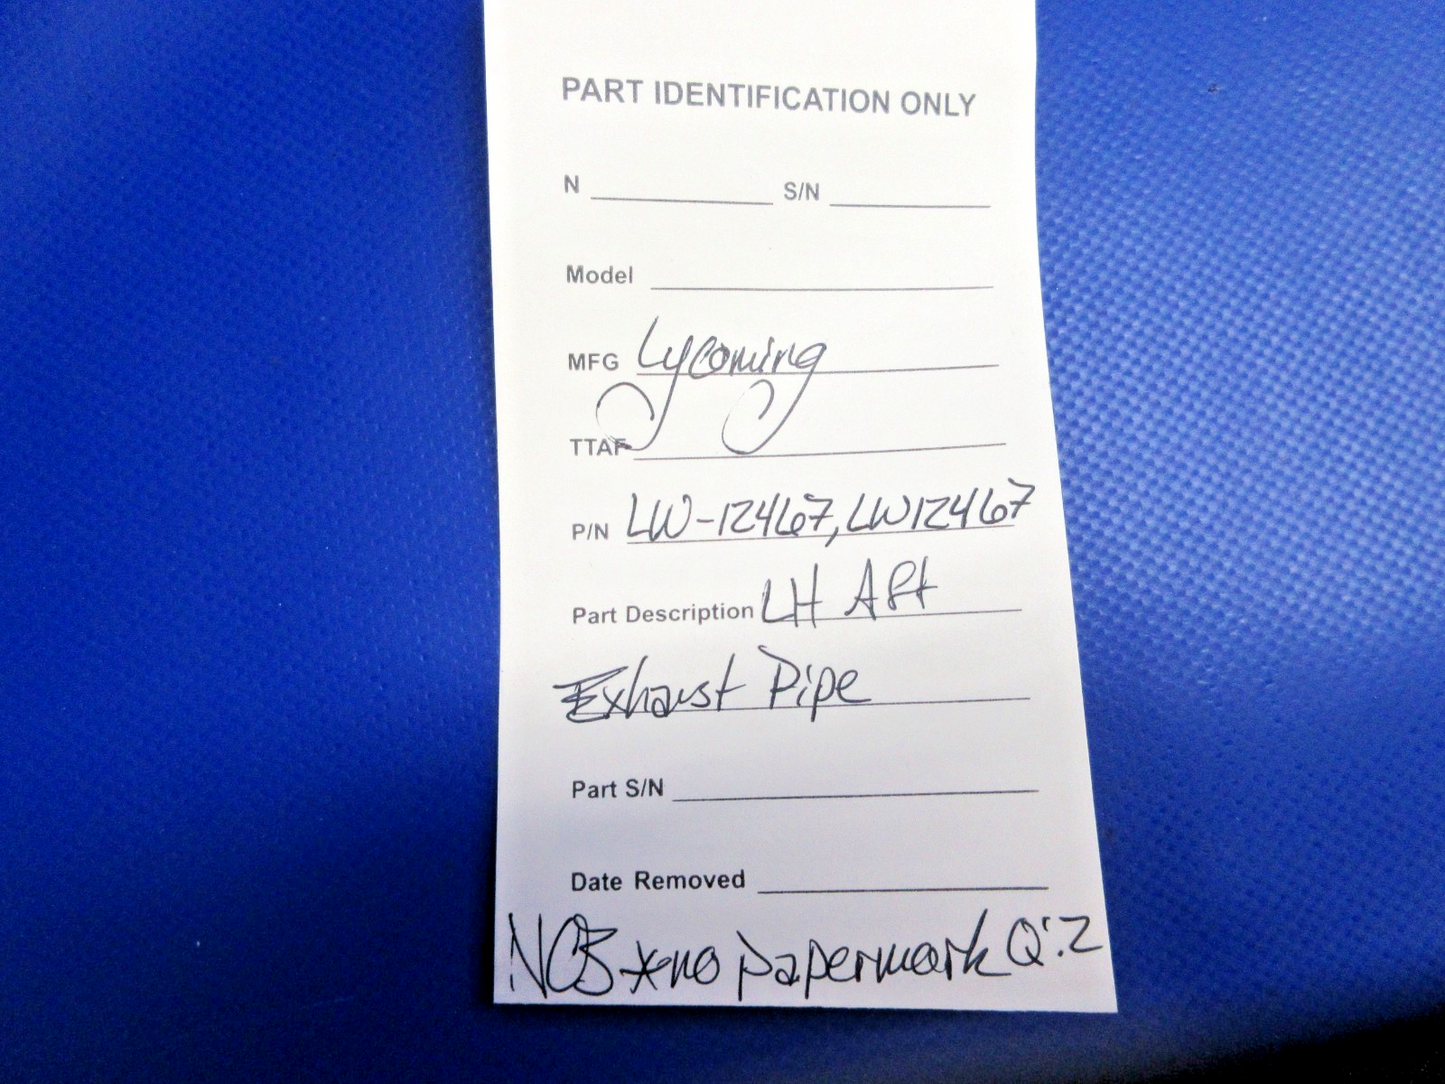 PART IDENTIFICATION ONLY
N S/N
Model
MFG Lycoming
TTAF
P/N LW-12467, LW12467
Part Description LH Aft
Exhaust Pipe
Part S/N
Date Removed
*no papermark Q:2